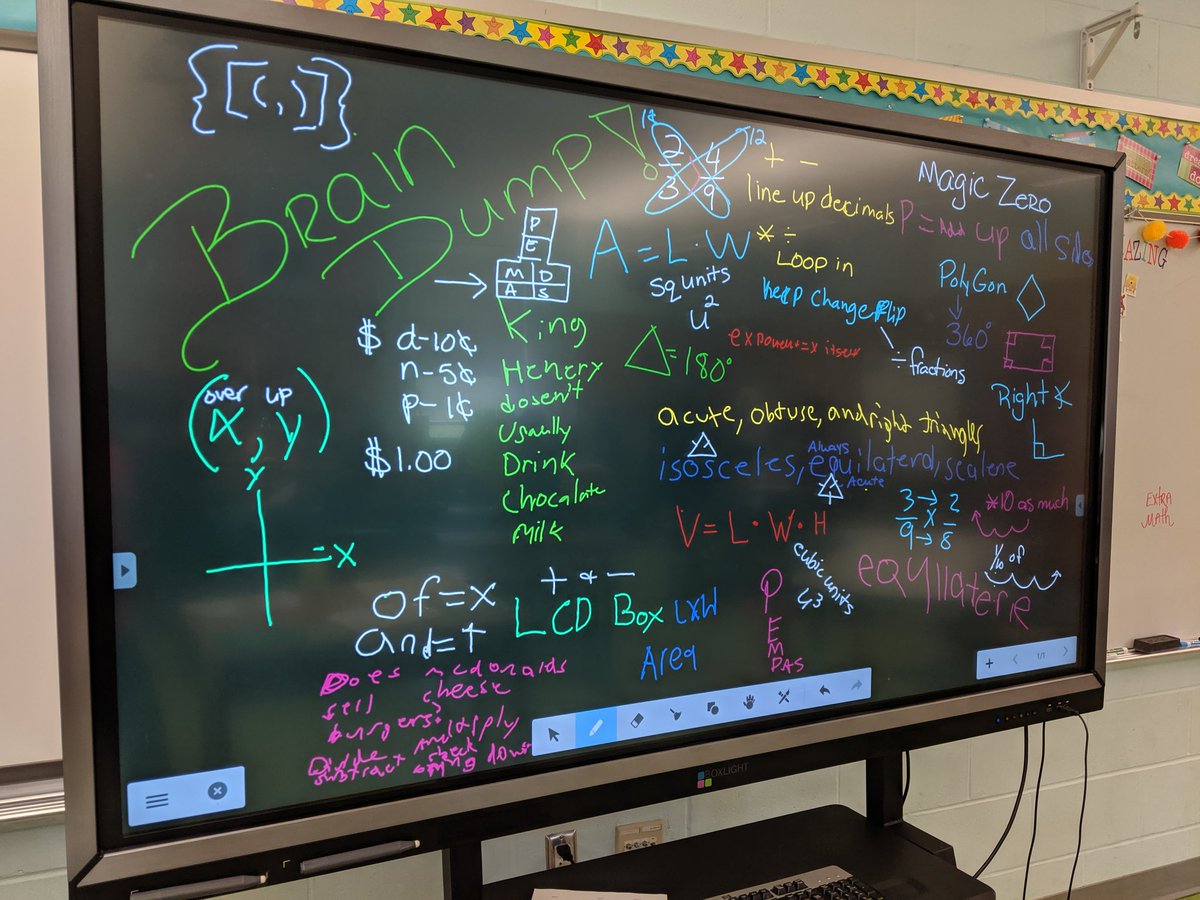 {[(,)]}
Brain
Dump!
P
E
M D
A S
$ d-10¢
n-5¢
p-1¢
$1.00
over up
(X, Y)
Y
X
King
Henery
dosen't
Usually
Drink
Chocalate
milk
18 12
2 4
3 9
+ -
line up decimals
* ÷
Loop in
A = L · W
sq units
u²
keep change flip
÷ fractions
exponent=x itself
△=180°
Magic Zero
P = Add up all sides
PolyGon
360°
Right ∠
acute, obtuse, and right triangles
Always
isosceles, equilateral, scalene
Acute
V = L · W · H
cubic units
u3
3 → 2
x
9 → 8
*10 as much
1/10 of
eqyllaterie
of = x
and = +
+ & -
LCD Box
LxW
Area
P
E
M
DAS
Does mcdonalds
sell cheese
burgers?
Divide multiply
subtract check
bring down
EXTRA
MATH
AZING
1/1
BOXLIGHT